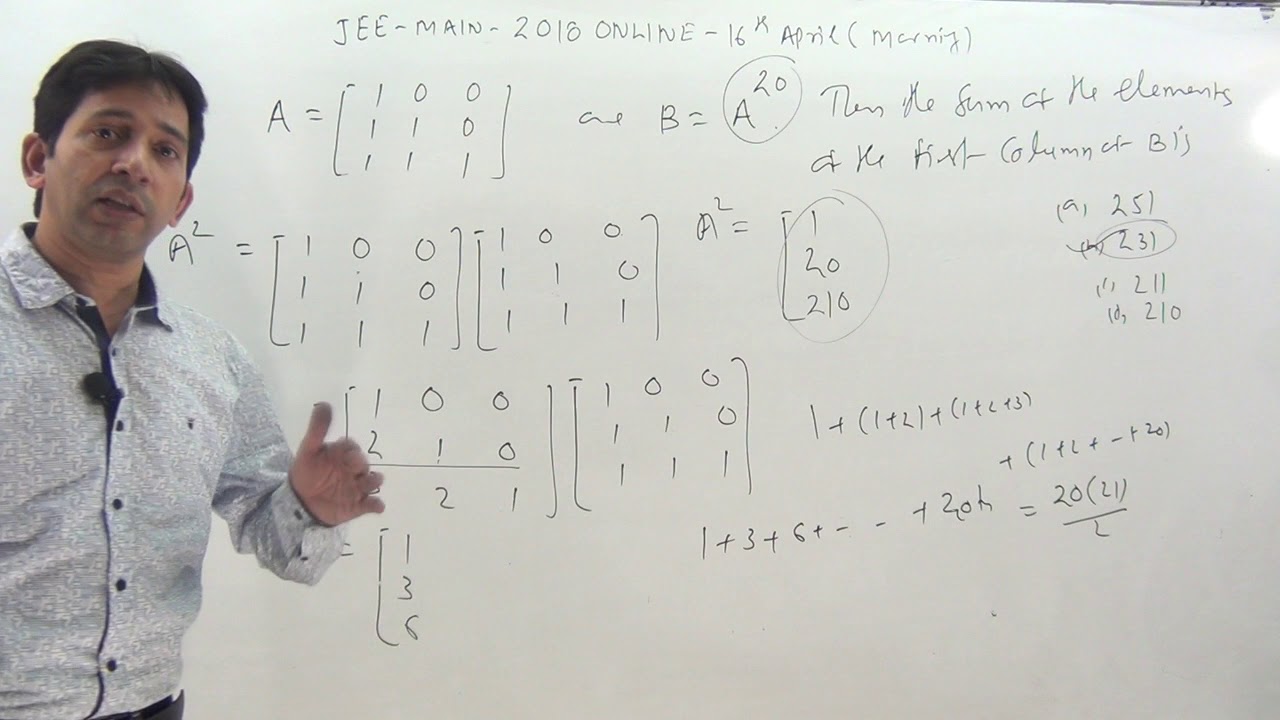 JEE-MAIN-2018 ONLINE-16th April (Morning)
A = [ 1 0 0
1 1 0
1 1 1 ]
B = A^20 Then the sum of the elements
of the first column of B is
(a) 251
(b) 231
(c) 211
(d) 210
A^2 = [ 1 0 0 ] [ 1 0 0
1 1 0 ] [ 1 1 0
1 1 1 ] [ 1 1 1 ]
A^2 = [ 1
20
210
[ 1 0 0 ] [ 1 0 0
2 1 0 ] [ 1 1 0
2 1 ] [ 1 1 1 ]
= [ 1
3
6
1 + (1+2) + (1+2+3)
+ (1+2+-+20)
1 + 3 + 6 + - - + 20th = 20(21)/2